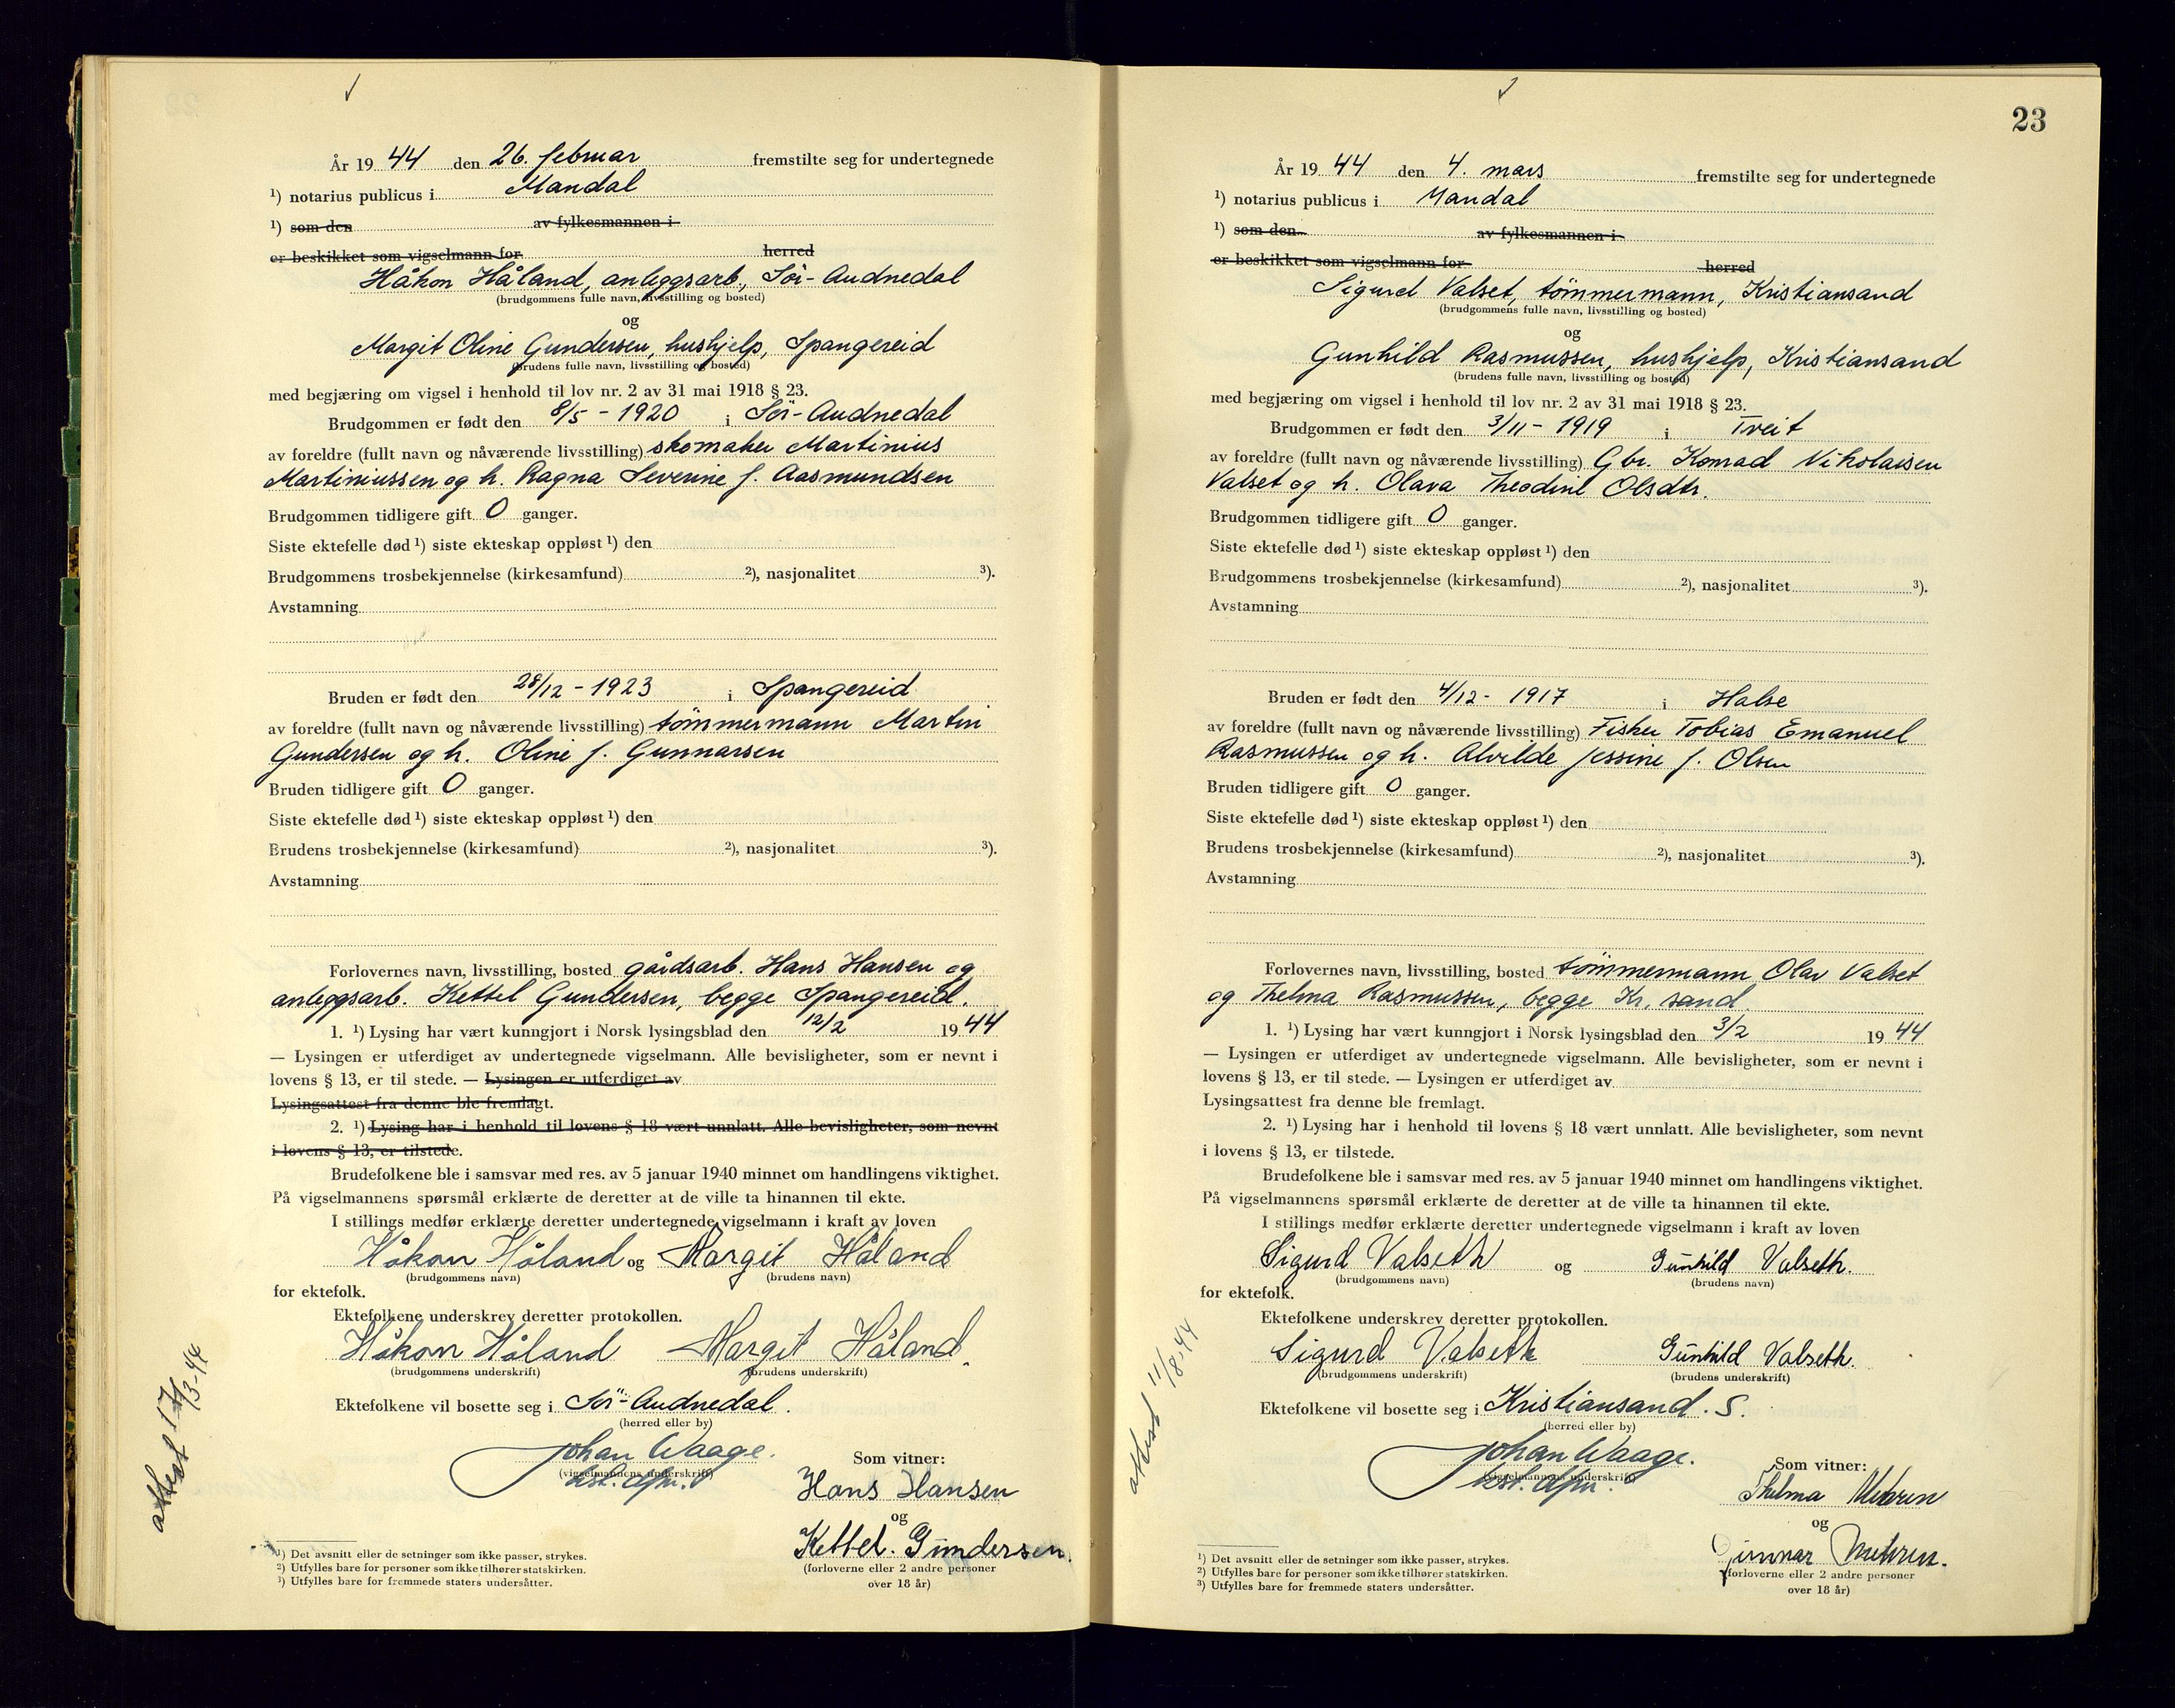 År 19 44 den 26. februar fremstilte seg for undertegnede
¹) notarius publicus i Mandal
¹) som den av fylkesmannen i
er beskikket som vigselmann for herred
Håkon Håland, anleggsarb., Sör-Audnedal
(brudgommens fulle navn, livsstilling og bosted)
og
Margit Oline Gundersen, hushjelp, Spangereid
(brudens fulle navn, livsstilling og bosted)
med begjæring om vigsel i henhold til lov nr. 2 av 31 mai 1918 § 23.
Brudgommen er født den 8/5 - 1920 i Sör-Audnedal
av foreldre (fullt navn og nåværende livsstilling) skomaker Martinius
Martiniussen og h. Ragna Severine f. Aasmundsen
Brudgommen tidligere gift 0 ganger.
Siste ektefelle død ¹) siste ekteskap oppløst ¹) den
Brudgommens trosbekjennelse (kirkesamfund) ²), nasjonalitet ³).
Avstamning
Bruden er født den 28/12 - 1923 i Spangereid
av foreldre (fullt navn og nåværende livsstilling) tömmermann Martin
Gundersen og h. Oline f. Gunnarsen
Bruden tidligere gift 0 ganger.
Siste ektefelle død ¹) siste ekteskap oppløst ¹) den
Brudens trosbekjennelse (kirkesamfund) ²), nasjonalitet ³).
Avstamning
Forlovernes navn, livsstilling, bosted gårdsarb. Hans Hansen og
anleggsarb. Kettel Gundersen, begge Spangereid.
1. ¹) Lysing har vært kunngjort i Norsk lysingsblad den 12/2 19 44
— Lysingen er utferdiget av undertegnede vigselmann. Alle bevisligheter, som er nevnt i
lovens § 13, er til stede. — Lysingen er utferdiget av
Lysingsattest fra denne ble fremlagt.
2. ¹) Lysing har i henhold til lovens § 18 vært unnlatt. Alle bevisligheter, som nevnt
i lovens § 13, er tilstede.
Brudefolkene ble i samsvar med res. av 5 januar 1940 minnet om handlingens viktighet.
På vigselmannens spørsmål erklærte de deretter at de ville ta hinannen til ekte.
I stillings medfør erklærte deretter undertegnede vigselmann i kraft av loven
Håkon Håland og Margit Håland
(brudgommens navn) (brudens navn)
for ektefolk.
Ektefolkene underskrev deretter protokollen.
Håkon Håland Margit Håland.
(brudgommens underskrift) (brudens underskrift)
Ektefolkene vil bosette seg i Sör-Audnedal.
(herred eller by)
Johan Waage.
(vigselmannens underskrift)
Som vitner:
Hans Hansen
og
Kettel. Gundersen.
(forloverne eller 2 andre personer
over 18 år)
¹) Det avsnitt eller de setninger som ikke passer, strykes.
²) Utfylles bare for personer som ikke tilhører statskirken.
³) Utfylles bare for fremmede staters undersåtter.
attest 17/3-44
23
År 19 44 den 4. mars fremstilte seg for undertegnede
¹) notarius publicus i Mandal
¹) som den av fylkesmannen i
er beskikket som vigselmann for herred
Sigurd Valset, tömmermann, Kristiansand
(brudgommens fulle navn, livsstilling og bosted)
og
Gunhild Rasmussen, hushjelp, Kristiansand
(brudens fulle navn, livsstilling og bosted)
med begjæring om vigsel i henhold til lov nr. 2 av 31 mai 1918 § 23.
Brudgommen er født den 3/11 - 1919 i Tveit
av foreldre (fullt navn og nåværende livsstilling) Gbr. Konrad Nikolaisen
Valset og h. Olava Theodine Olsdtr.
Brudgommen tidligere gift 0 ganger.
Siste ektefelle død ¹) siste ekteskap oppløst ¹) den
Brudgommens trosbekjennelse (kirkesamfund) ²), nasjonalitet ³).
Avstamning
Bruden er født den 4/12 - 1917 i Halse
av foreldre (fullt navn og nåværende livsstilling) Fisker Tobias Emanuel
Rasmussen og h. Alvilde Jessine f. Olsen
Bruden tidligere gift 0 ganger.
Siste ektefelle død ¹) siste ekteskap oppløst ¹) den
Brudens trosbekjennelse (kirkesamfund) ²), nasjonalitet ³).
Avstamning
Forlovernes navn, livsstilling, bosted tömmermann Olav Valset
og Thelma Rasmussen, begge Kr. sand
1. ¹) Lysing har vært kunngjort i Norsk lysingsblad den 3/2 19 44
— Lysingen er utferdiget av undertegnede vigselmann. Alle bevisligheter, som er nevnt i
lovens § 13, er til stede. — Lysingen er utferdiget av
Lysingsattest fra denne ble fremlagt.
2. ¹) Lysing har i henhold til lovens § 18 vært unnlatt. Alle bevisligheter, som nevnt
i lovens § 13, er tilstede.
Brudefolkene ble i samsvar med res. av 5 januar 1940 minnet om handlingens viktighet.
På vigselmannens spørsmål erklærte de deretter at de ville ta hinannen til ekte.
I stillings medfør erklærte deretter undertegnede vigselmann i kraft av loven
Sigurd Valseth og Gunhild Valseth.
(brudgommens navn) (brudens navn)
for ektefolk.
Ektefolkene underskrev deretter protokollen.
Sigurd Valseth Gunhild Valseth.
(brudgommens underskrift) (brudens underskrift)
Ektefolkene vil bosette seg i Kristiansand. S.
(herred eller by)
Johan Waage.
(vigselmannens underskrift)
Som vitner:
Thelma Mehren
og
Gunnar Mehren.
(forloverne eller 2 andre personer
over 18 år)
¹) Det avsnitt eller de setninger som ikke passer, strykes.
²) Utfylles bare for personer som ikke tilhører statskirken.
³) Utfylles bare for fremmede staters undersåtter.
attest 11/8-44